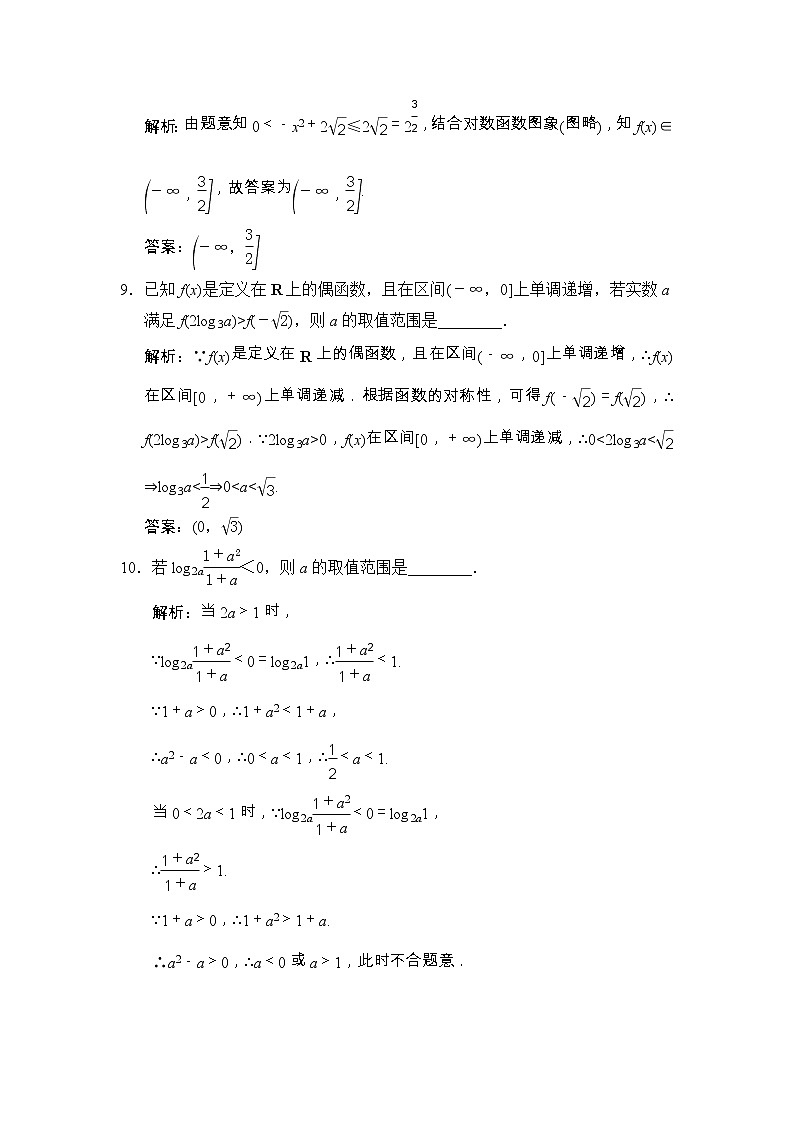 解析：由题意知 0＜－x²＋2√2≤2√2＝2^(3/2)，结合对数函数图象(图略)，知 f(x)∈
(－∞，3/2]，故答案为(－∞，3/2].
答案：(－∞，3/2]
9．已知 f(x)是定义在 R 上的偶函数，且在区间(－∞，0]上单调递增，若实数 a
满足 f(2log₃a)>f(－√2)，则 a 的取值范围是________．
解析：∵f(x)是定义在 R 上的偶函数，且在区间(－∞，0]上单调递增，∴f(x)
在区间[0，＋∞)上单调递减．根据函数的对称性，可得 f(－√2)＝f(√2)，∴
f(2log₃a)>f(√2)．∵2log₃a>0，f(x)在区间[0，＋∞)上单调递减，∴0<2log₃a<√2
⇒log₃a<1/2⇒0<a<√3.
答案：(0，√3)
10．若 log₂ₐ(1＋a²)/(1＋a)＜0，则 a 的取值范围是________．
解析：当 2a＞1 时，
∵log₂ₐ(1＋a²)/(1＋a)＜0＝log₂ₐ1，∴(1＋a²)/(1＋a)＜1.
∵1＋a＞0，∴1＋a²＜1＋a，
∴a²－a＜0，∴0＜a＜1，∴1/2＜a＜1.
当 0＜2a＜1 时，∵log₂ₐ(1＋a²)/(1＋a)＜0＝log₂ₐ1，
∴(1＋a²)/(1＋a)＞1.
∵1＋a＞0，∴1＋a²＞1＋a.
∴a²－a＞0，∴a＜0 或 a＞1，此时不合题意．